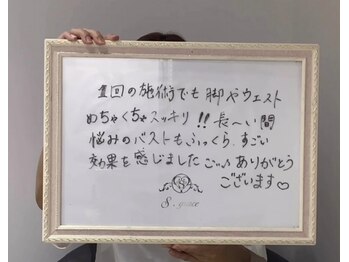 1回の施術でも脚やウエスト
めちゃくちゃスッキリ!!長〜い間
悩みのバストもふっくら、すごい
効果を感じました ありがとう
ございます♡
S.grace